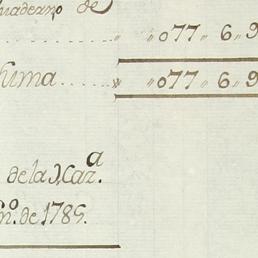 quaderno de
..... " " 077 " 6 " 9
hima ..... " " 077 " 6 " 9
de la Haz.a
En.o de 1785.